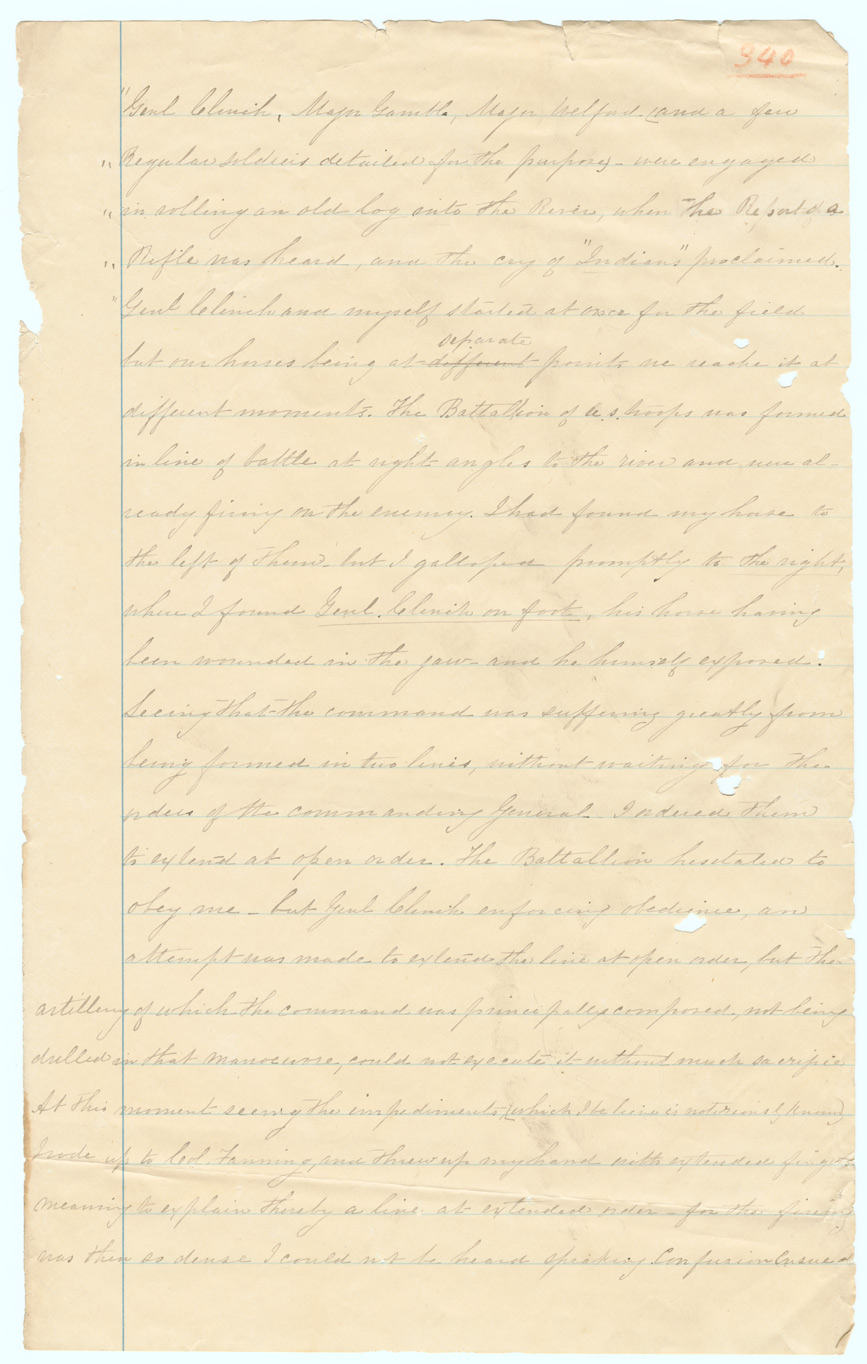 340
"Genl Clinch, Major Gamble, Major Welford (and a few
" Regular soldiers detailed for the purpose) - were engaged
" in rolling an old log into the River, when the Report of a
" Rifle was heard, and the cry of "Indians" proclaimed.
" Genl Clinch and myself started at once for the field
separate
but our horses being at different points we reache it at
different moments. The Battallion of U.S. troops was formed
in line of battle at right angles to the river and were al-
ready firing on the enemy. I had found my horse to
the left of Them - but I galloped promptly to the right,
where I found Genl. Clinch on foot, his horse having
been wounded in the jaw - and he himself exposed.
Seeing that the command was suffering greatly from
being formed in two lines, without waiting for the
orders of the commanding General I ordered Them
to extend at open order. The Battallion hesitated to
obey me - but Genl Clinch enforcing obedience, an
attempt was made to extend the line at open order, but The
artillery of which the command was principally composed, not being
drilled in that manoeuvre, could not execute it without much sacrifice
At this moment seeing the impediments, (which I believe is notoriously known)
I rode up to Col. Fanning, and threw up my hand with extended fingers
meaning to explain thereby a line at extended order - for the firing
was then so dense I could not be heard speaking. Confusion Ensued